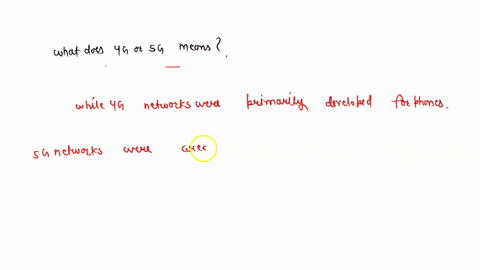 what does 4G or 5G means?
while 4G networks were primarily developed for phones.
5G networks were